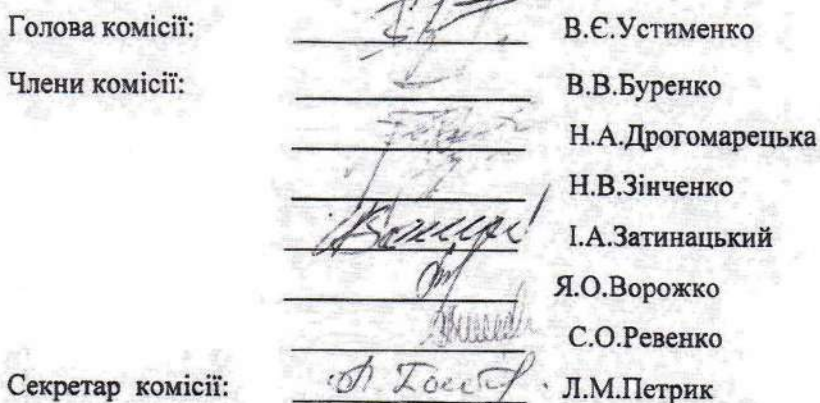 Голова комісії: В.Є.Устименко
Члени комісії: В.В.Буренко
Н.А.Дрогомарецька
Н.В.Зінченко
І.А.Затинацький
Я.О.Ворожко
С.О.Ревенко
Секретар комісії: Л.М.Петрик